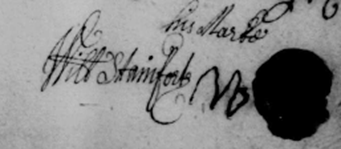 his Marke
Will Stainfort W